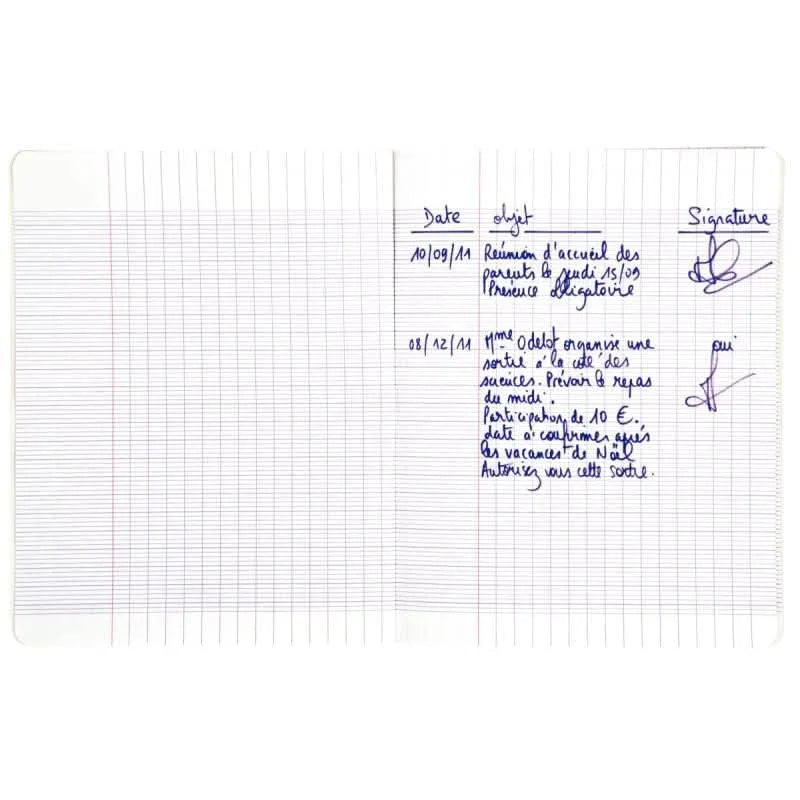 Date objet Signature
10/09/11 Reúnion d'accueil des
parents le jeudi 15/09
Présence obligatoire
08/12/11 Mme Odelot organise une oui
sortie à la cité des
sciences. Prévoir le repas
du midi.
Participation de 10 €.
date à confirmer après
les vacances de Noël
Autorisez vous cette sortie.